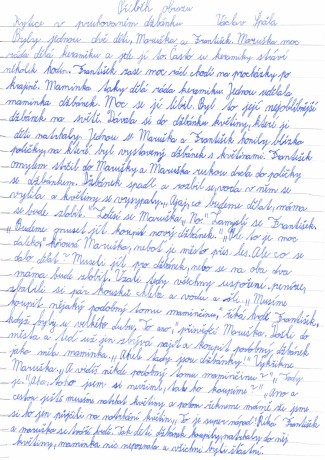 Příběh obrazu
Kytice v pruhovaném džbánku Václav Špála
Byly jednou dvě děti, Maruška a František. Maruška moc
ráda dělá keramiku a jde jí to. Často u keramiky stráví
několik hodin. František zase moc rád chodí na procházky po
krajině. Maminka taky dělá ráda keramiku. Jednou udělala
maminka džbánek. Moc se jí líbil. Byl to její nejoblíbenější
džbánek na světě. Dávala si do džbánku květiny, které jí
děti natrhaly. Jednou se Maruška a František honily blízko
poličky, na které byl vystavený džbánek s květinami. František
omylem strčil do Marušky a Maruška rukou do poličky
se džbánkem. Džbánek spadl a rozbil se, voda v něm se
vylila a květiny se vysypaly. „Ajaj, co budeme dělat, máma
se bude zlobit." Zděsí se Maruška. „No." Zamyslí se František.
„Budeme muset jít koupit nový džbánek." „Ale to je moc
daleko," kňourá Maruška, neboť je město přes les. „Ale co se
dá dělat?" Museli jít pro džbánek, nebo se na oba dva
máma bude zlobit. Vzali tedy všechny úspory, peníze,
sbalili si pár housek chleba a vodu a šli. „Musíme
koupit nějaký podobný tomu maminčinu," říká František,
když byly u velkého dubu. „To ano," přisvědčí Maruška. Došli do
města a teď už jen zbývá najít a koupit podobný džbánek
jako měla maminka. „Ahá tady jsou džbánky!" Vykřikne
Maruška. „A vidíš někde podobný tomu maminčinu?" „Tady
je." „Ano, toho jsem si nevšiml, tak ho koupíme?" „Ano a
cestou ještě musíme natrhat květiny a potom řekneme mámě, že jsme
se to jen půjčili na natrhání květiny." „To je super nápad." Říká František
a maruška se tváří pyšně. Tak děti džbánek koupily, natrhaly do něj
květiny, maminka nic nepoznala a všichni byli šťastní.